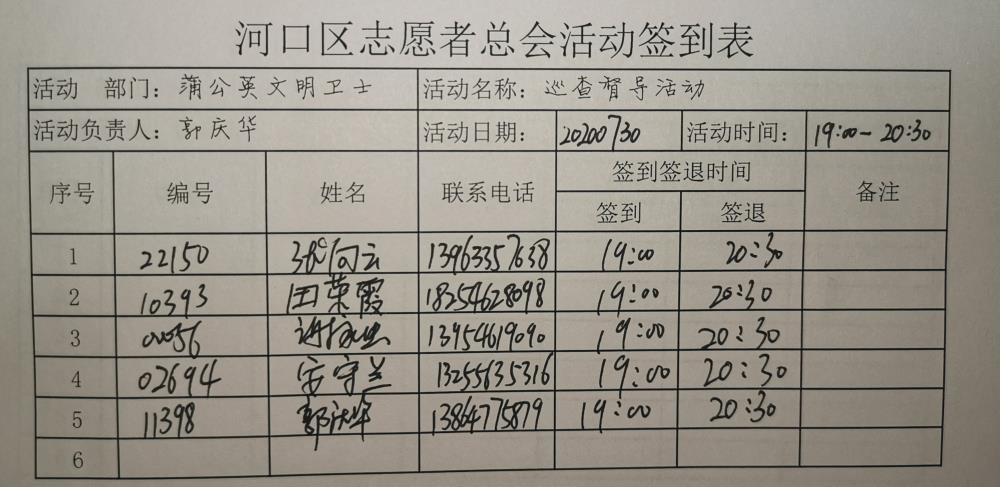 河口区志愿者总会活动签到表
活动 部门：蒲公英文明卫士 活动名称：巡查督导活动
活动负责人：郭庆华 活动日期： 20200730 活动时间： 19:00-20:30
序号 编号 姓名 联系电话 签到签退时间 备注
签到 签退
1 22150 13963357638 19:00 20:30
2 10393 田荣霞 18254628098 19:00 20:30
3 00056 13954619090 19:00 20:30
4 02694 安守兰 13255635316 19:00 20:30
5 11398 郭庆华 13864775879 19:00 20:30
6